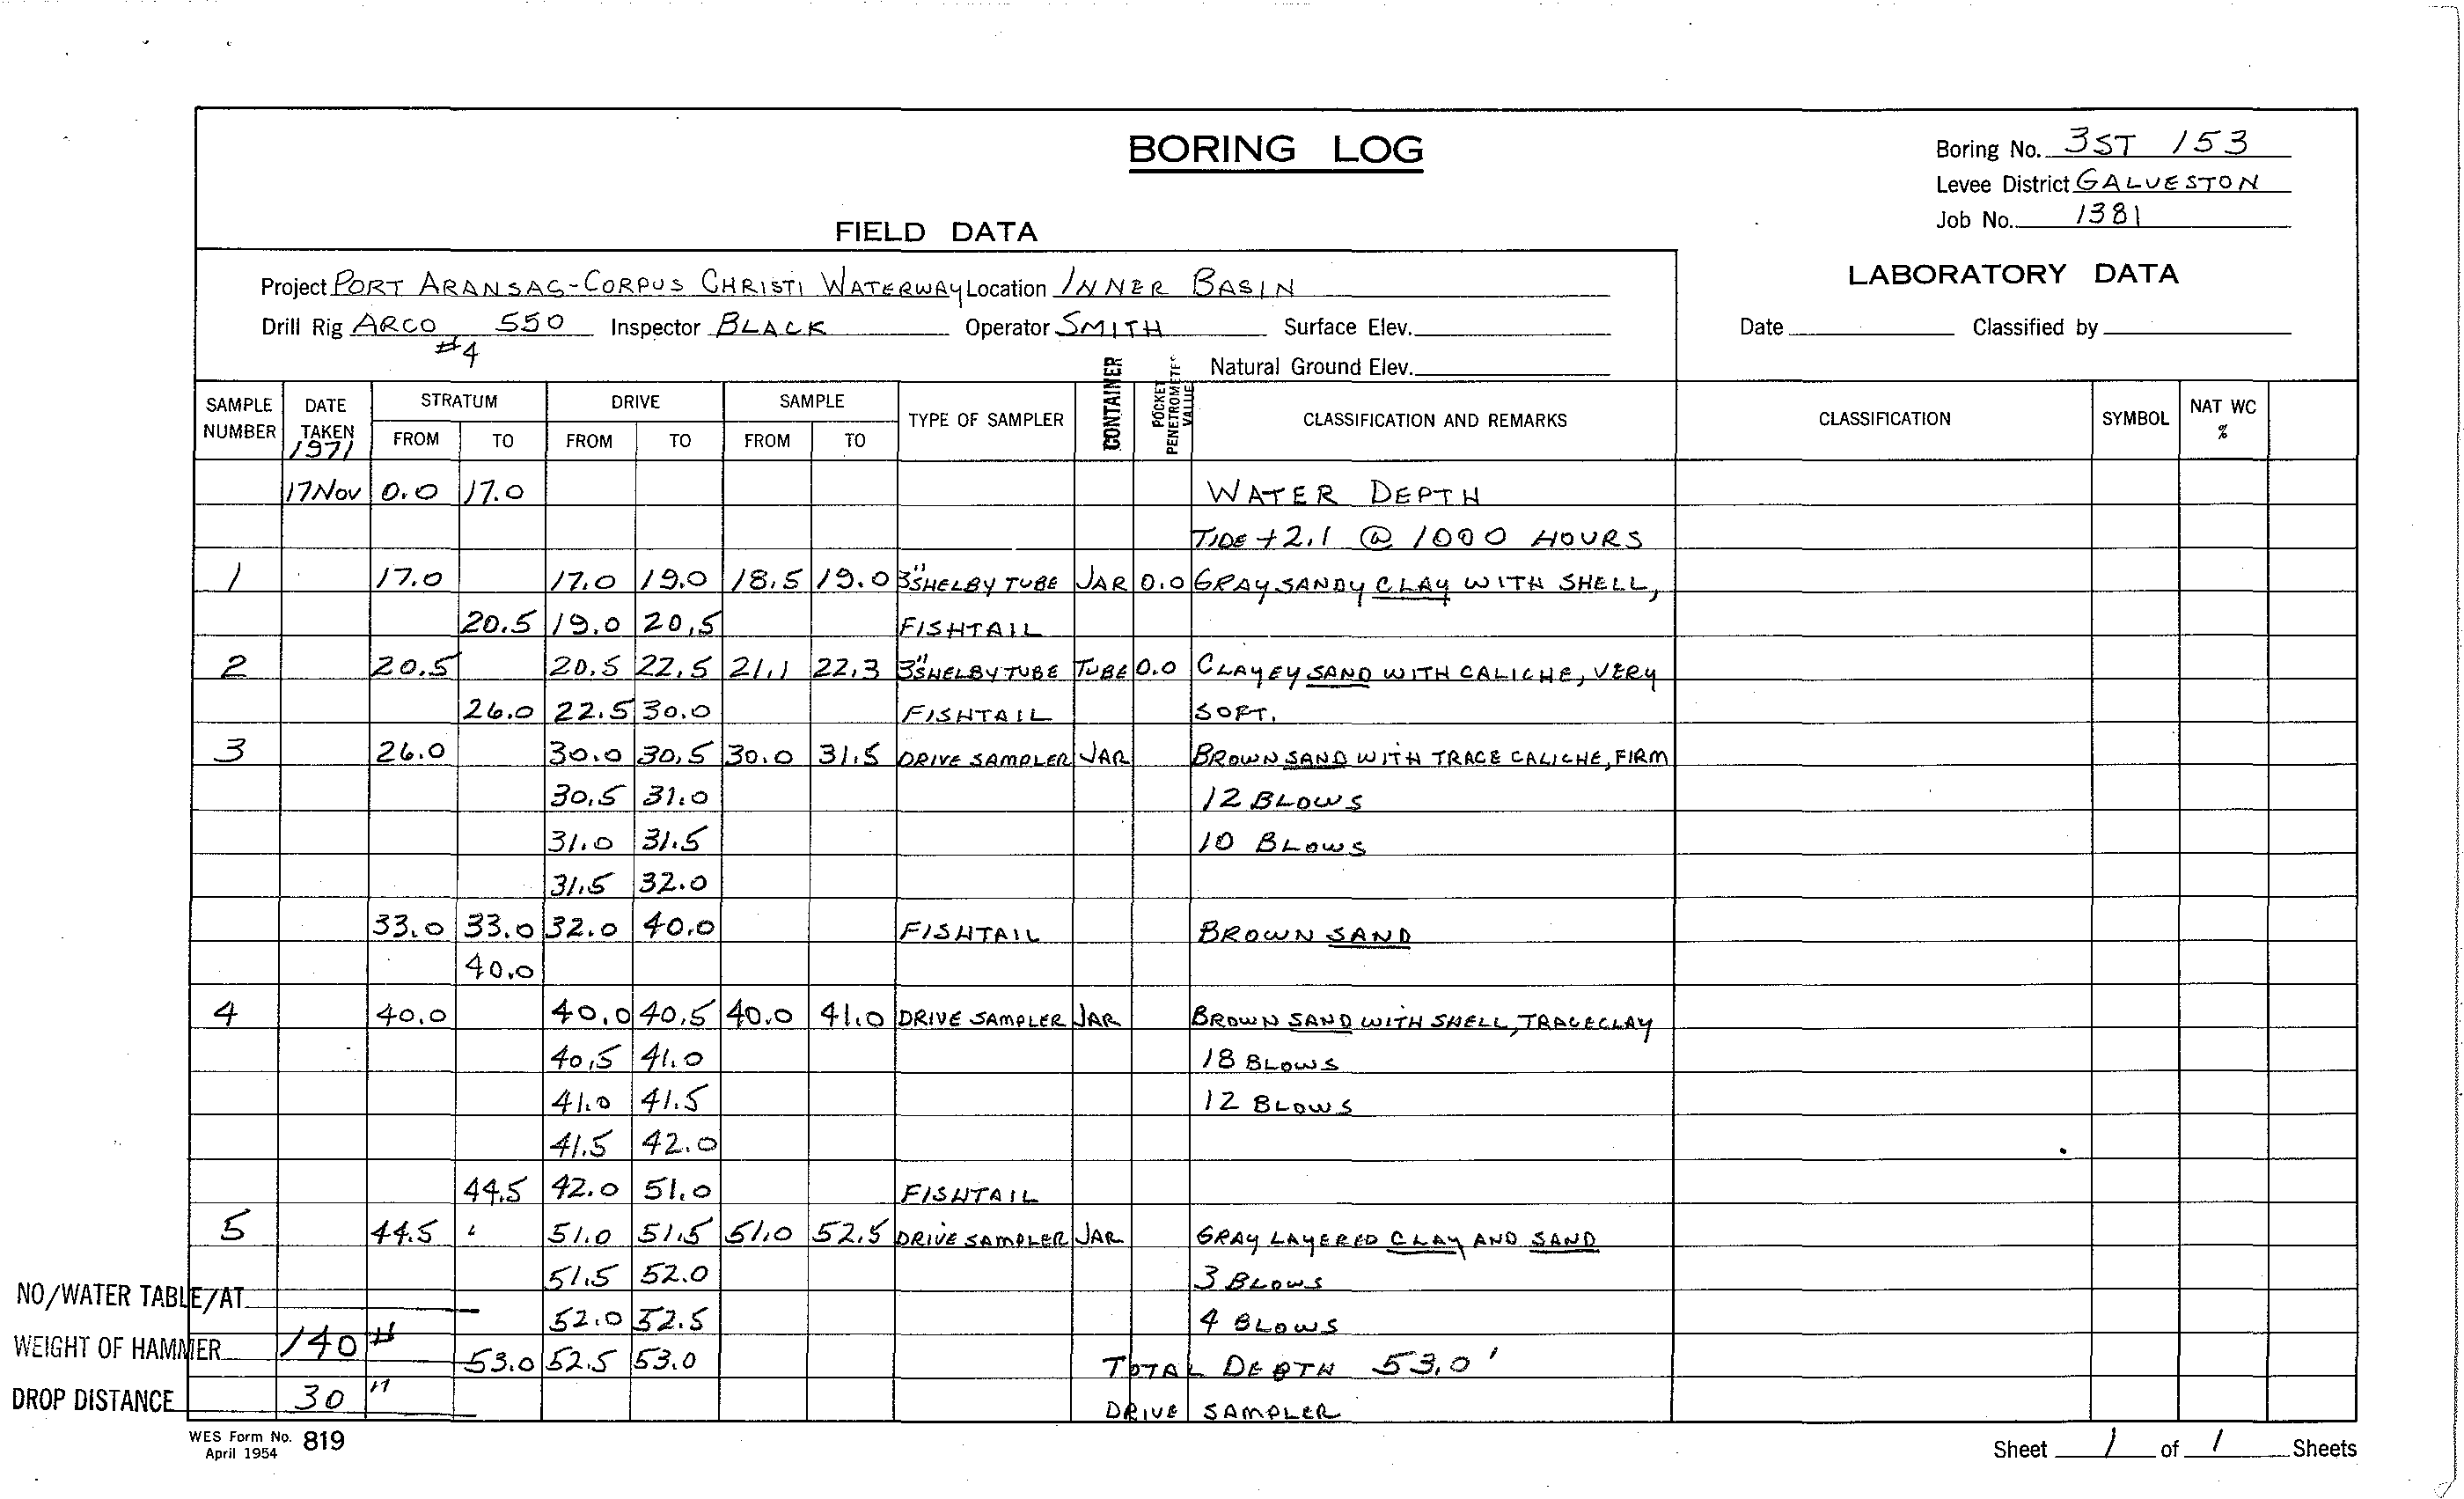 BORING LOG
Boring No. 3ST 153
Levee District GALVESTON
Job No. 1381
FIELD DATA
LABORATORY DATA
Project PORT ARANSAS-CORPUS CHRISTI WATERWAY Location INNER BASIN
Drill Rig ARCO #4 550 Inspector BLACK Operator SMITH Surface Elev.
Date Classified by
Natural Ground Elev.
SAMPLE NUMBER DATE TAKEN 1971 STRATUM FROM TO DRIVE FROM TO SAMPLE FROM TO TYPE OF SAMPLER CONTAINER POCKET PENETROMETER VALUE CLASSIFICATION AND REMARKS CLASSIFICATION SYMBOL NAT WC %
17 Nov 0.0 17.0 WATER DEPTH
TIDE +2.1 @ 1000 HOURS
1 17.0 17.0 19.0 18.5 19.0 3" SHELBY TUBE JAR 0.0 GRAY SANDY CLAY WITH SHELL,
20.5 19.0 20.5 FISHTAIL
2 20.5 20.5 22.5 21.1 22.3 3" SHELBY TUBE TUBE 0.0 CLAYEY SAND WITH CALICHE, VERY
26.0 22.5 30.0 FISHTAIL SOFT.
3 26.0 30.0 30.5 30.0 31.5 DRIVE SAMPLER JAR BROWN SAND WITH TRACE CALICHE, FIRM
30.5 31.0 12 BLOWS
31.0 31.5 10 BLOWS
31.5 32.0
33.0 33.0 32.0 40.0 FISHTAIL BROWN SAND
40.0
4 40.0 40.0 40.5 40.0 41.0 DRIVE SAMPLER JAR BROWN SAND WITH SHELL, TRACE CLAY
40.5 41.0 18 BLOWS
41.0 41.5 12 BLOWS
41.5 42.0
44.5 42.0 51.0 FISHTAIL
5 44.5 51.0 51.5 51.0 52.5 DRIVE SAMPLER JAR GRAY LAYERED CLAY AND SAND
51.5 52.0 3 BLOWS
NO/WATER TABLE/AT
52.0 52.5 4 BLOWS
WEIGHT OF HAMMER 140 #
53.0 52.5 53.0 TOTAL DEPTH 53.0'
DROP DISTANCE 30 "
DRIVE SAMPLER
WES Form No. 819
April 1954
Sheet 1 of 1 Sheets